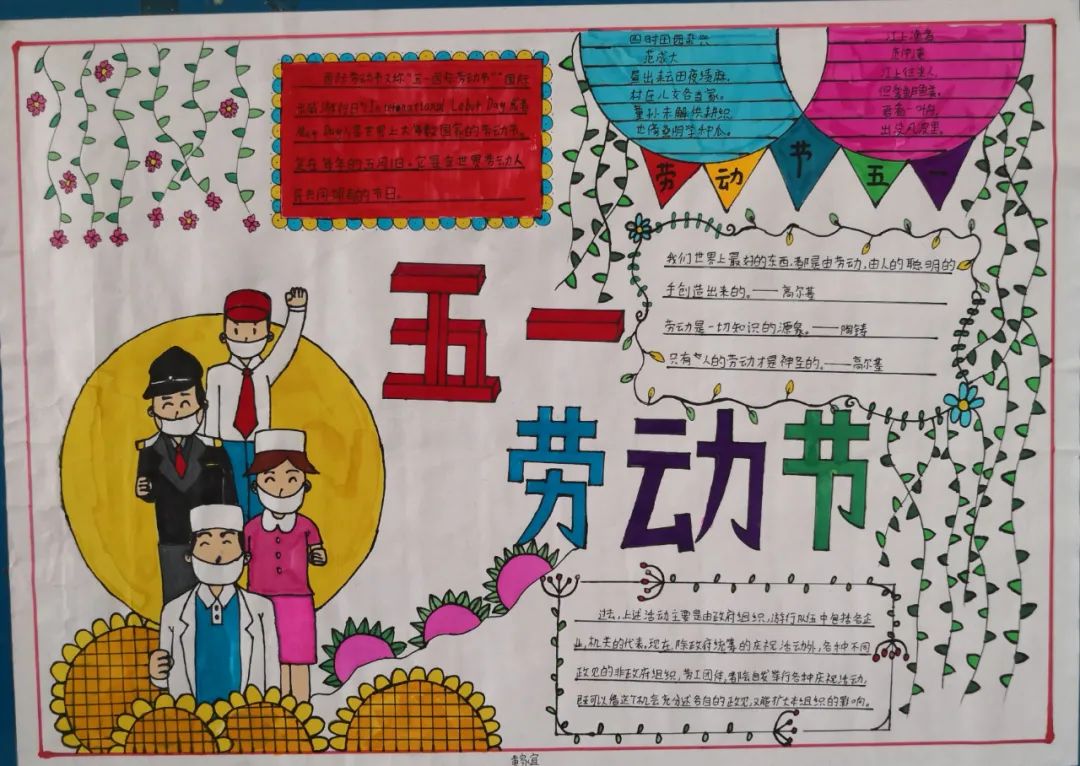 国际劳动节又称"五一国际劳动节""国际
示威游行日"International Labor Day或者
May Day)是世界上大多数国家的劳动节。
定在每年的五月1日。它是全世界劳动人
民共同拥有的节日。
四时田园杂兴
范成大
昼出耘田夜绩麻,
村庄儿女各当家。
童孙未解供耕织
也傍桑阴学种瓜。
江上渔者
范仲淹
江上往来人,
但爱鲈鱼美。
君看一叶舟,
出没风波里。
劳动节五一
我们世界上最好的东西,都是由劳动,由人的聪明的
手创造出来的。——高尔基
劳动是一切知识的源泉。——陶铸
只有人的劳动才是神圣的。——高尔基
五一
劳动节
过去,上述活动主要是由政府组织,游行队伍中包括各企
业,机关的代表,现在,除政府统筹的庆祝活动外,各种不同
政见的非政府组织,劳工团体,都会自发举行各种庆祝活动,
既可以借这个机会充分述各自的政见,又能扩大本组织的影响。